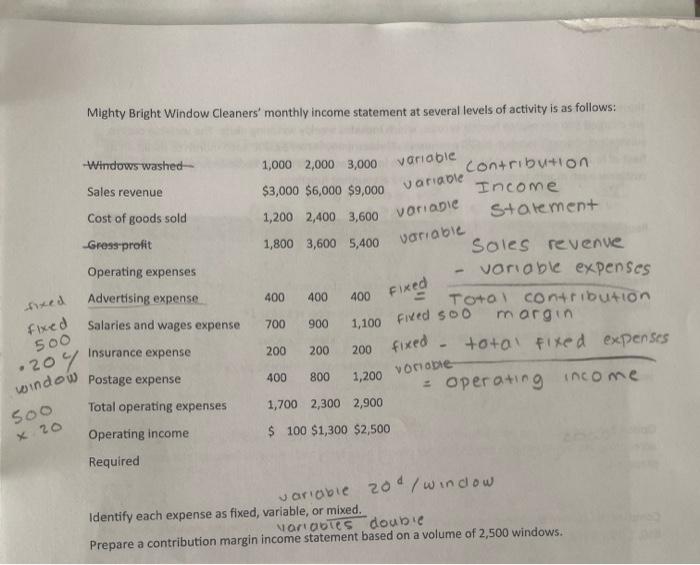 Mighty Bright Window Cleaners' monthly income statement at several levels of activity is as follows:
Windows washed 1,000 2,000 3,000 variable contribution
Sales revenue $3,000 $6,000 $9,000 variable Income
Cost of goods sold 1,200 2,400 3,600 variable statement
Gross profit 1,800 3,600 5,400 variable Sales revenue
Operating expenses - variable expenses
fixed Advertising expense 400 400 400 Fixed = Total contribution
fixed Salaries and wages expense 700 900 1,100 Fixed 500 margin
500 Insurance expense 200 200 200 fixed - total fixed expenses
.20 / window Postage expense 400 800 1,200 variable = operating income
500 Total operating expenses 1,700 2,300 2,900
x .20 Operating income $ 100 $1,300 $2,500
Required
variable 20 / window
Identify each expense as fixed, variable, or mixed.
variables double
Prepare a contribution margin income statement based on a volume of 2,500 windows.